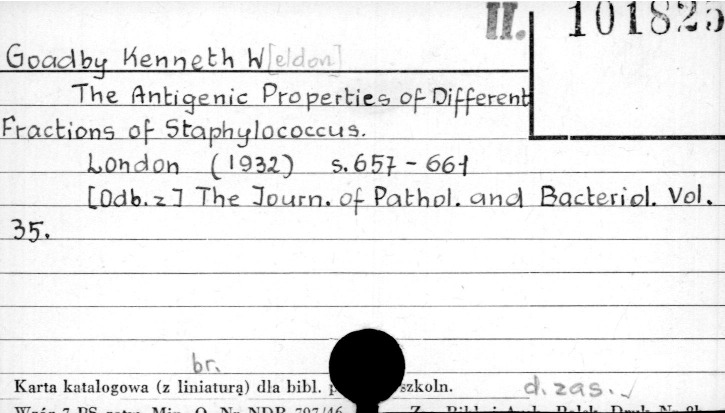 II. 101825
Goadby Kenneth W[eldon]
The Antigenic Properties of Different
Fractions of Staphylococcus.
London (1932) s. 657 - 661
[Odb. z] The Journ. of Pathol. and Bacteriol. Vol.
35.
br.
Karta katalogowa (z liniaturą) dla bibl. szkoln. d. zas.